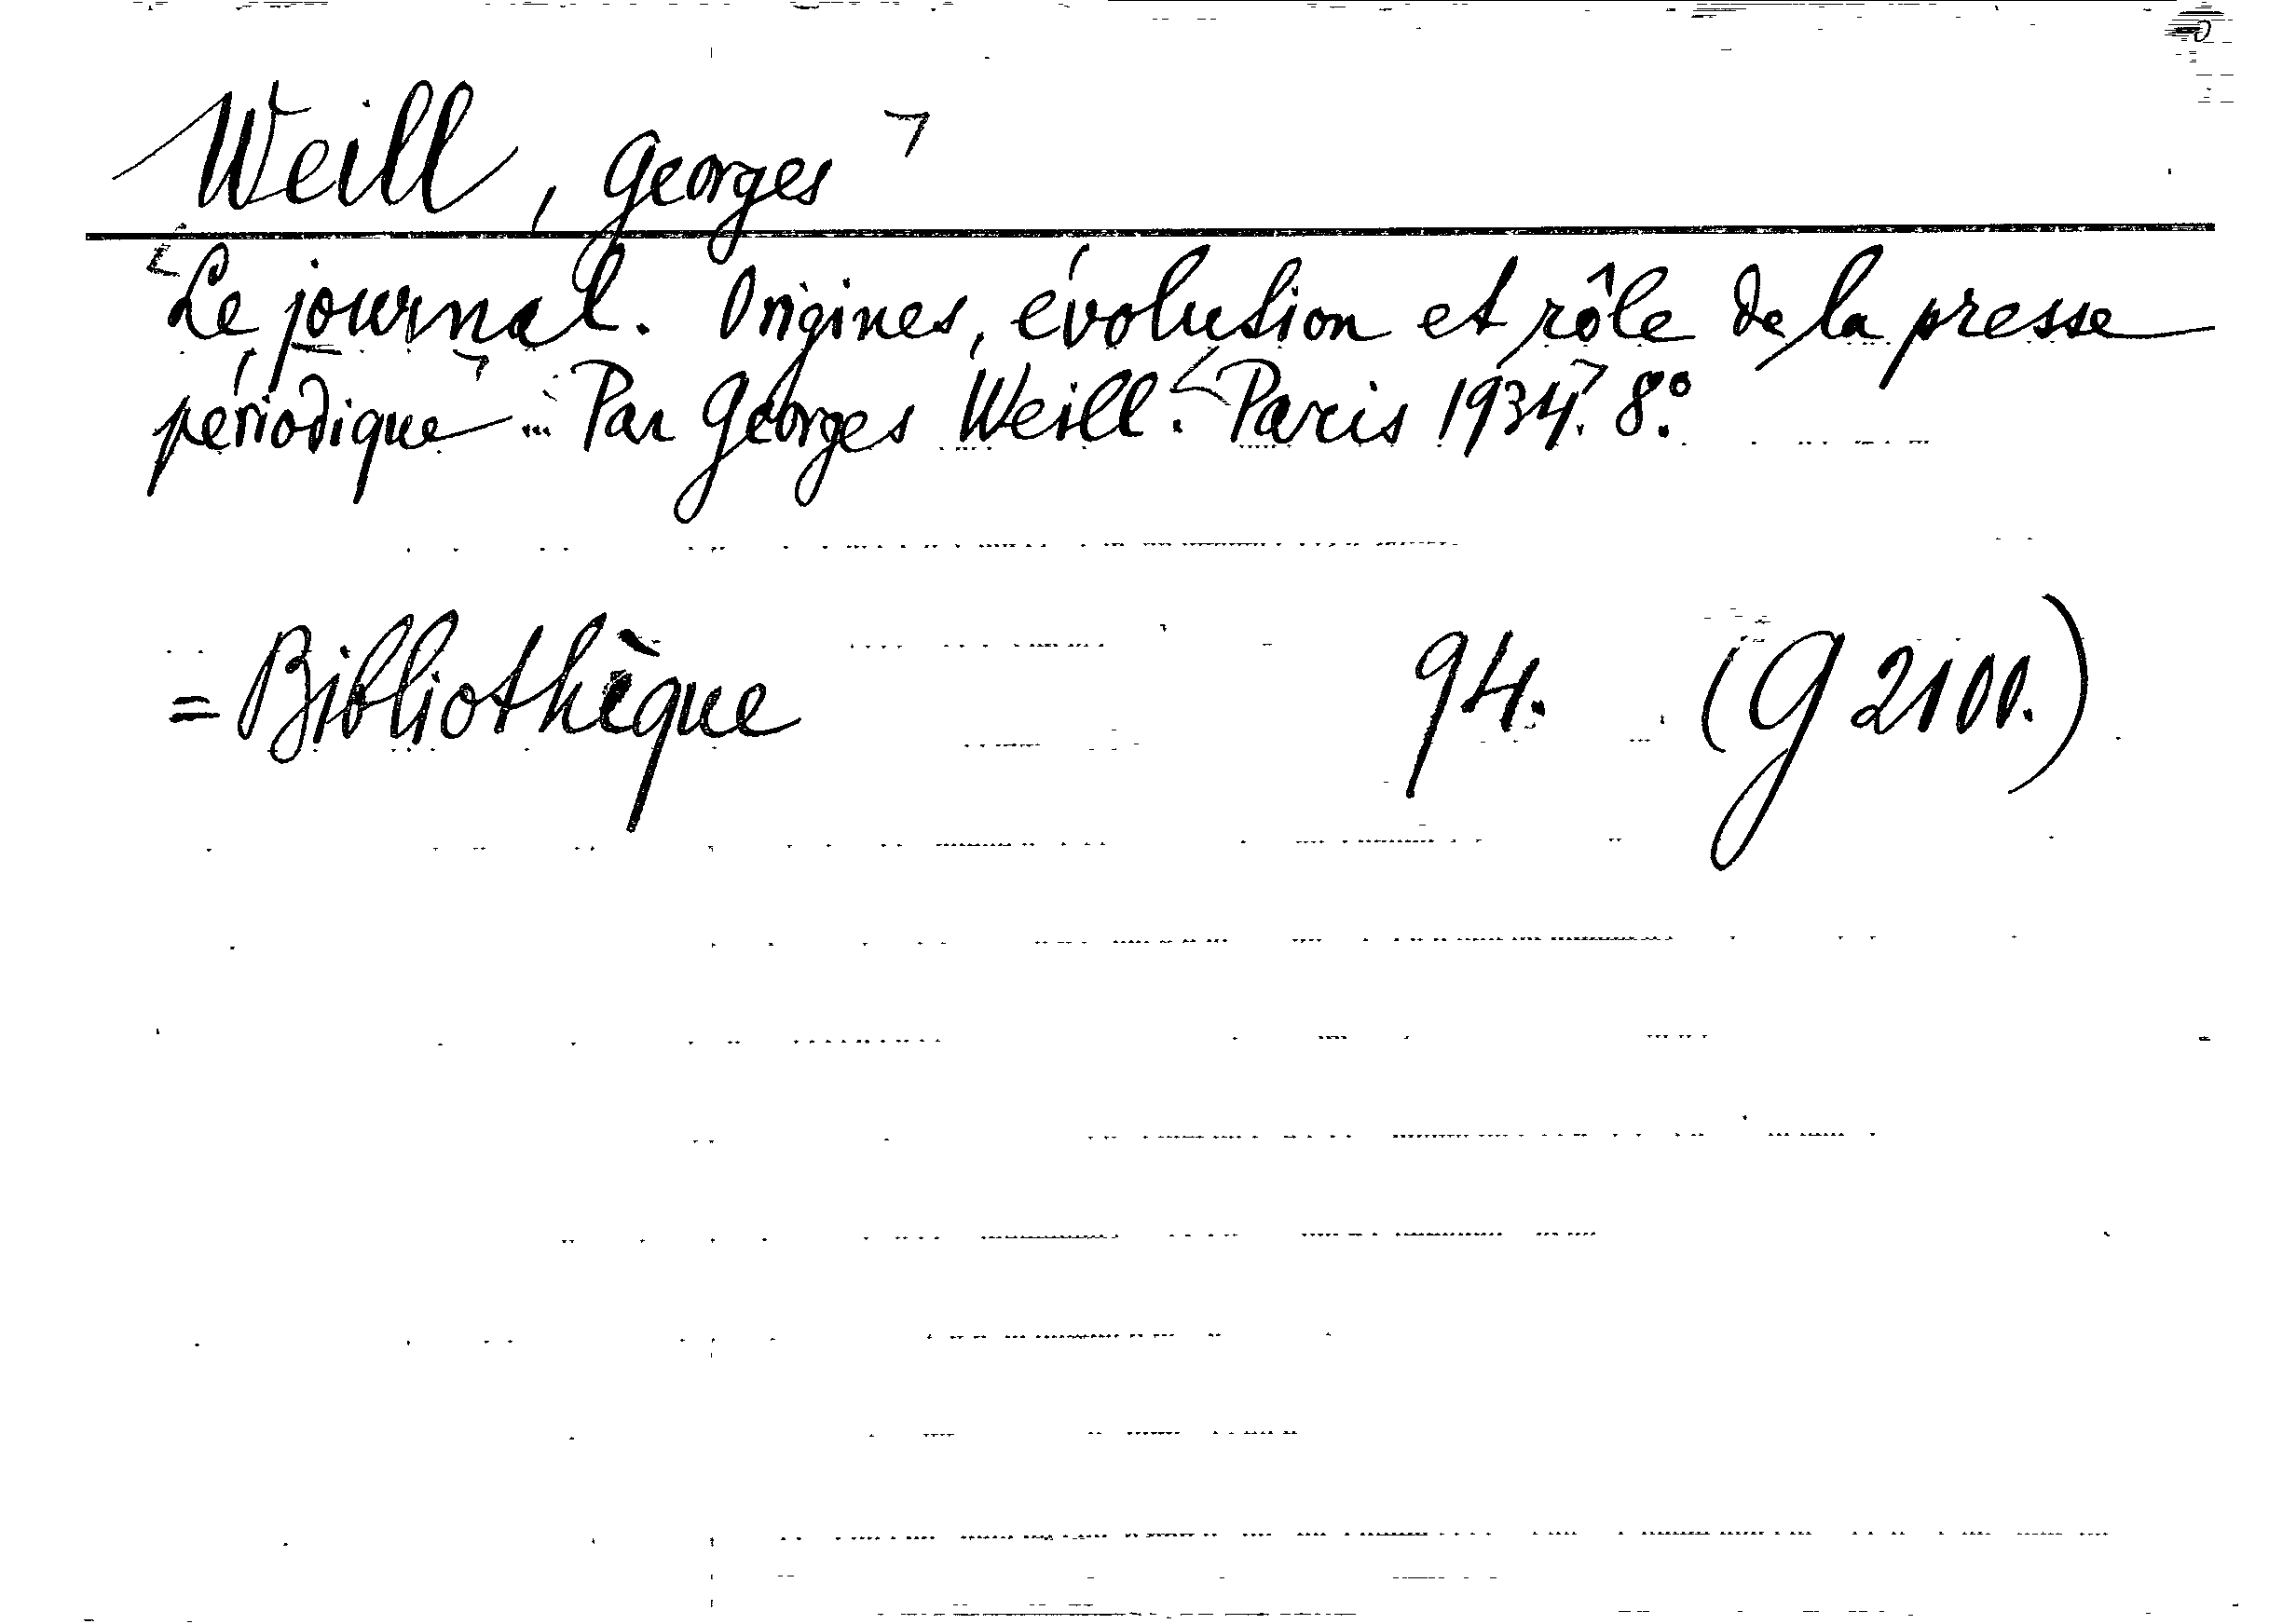 Weill, Georges
Le journal. Origines, évolution et rôle de la presse
périodique ... Par Georges Weill. Paris 1934. 8°.
= Bibliothèque 94. (G 2100.)